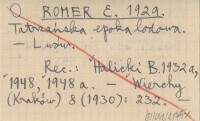 ROMER E. 1929.
Tatrzańska epoka lodowa.
– Lwów.
Rec.: Halicki B. 1932a,
1948, 1948a. – Wierchy
(Kraków) 8 (1930): 232. –